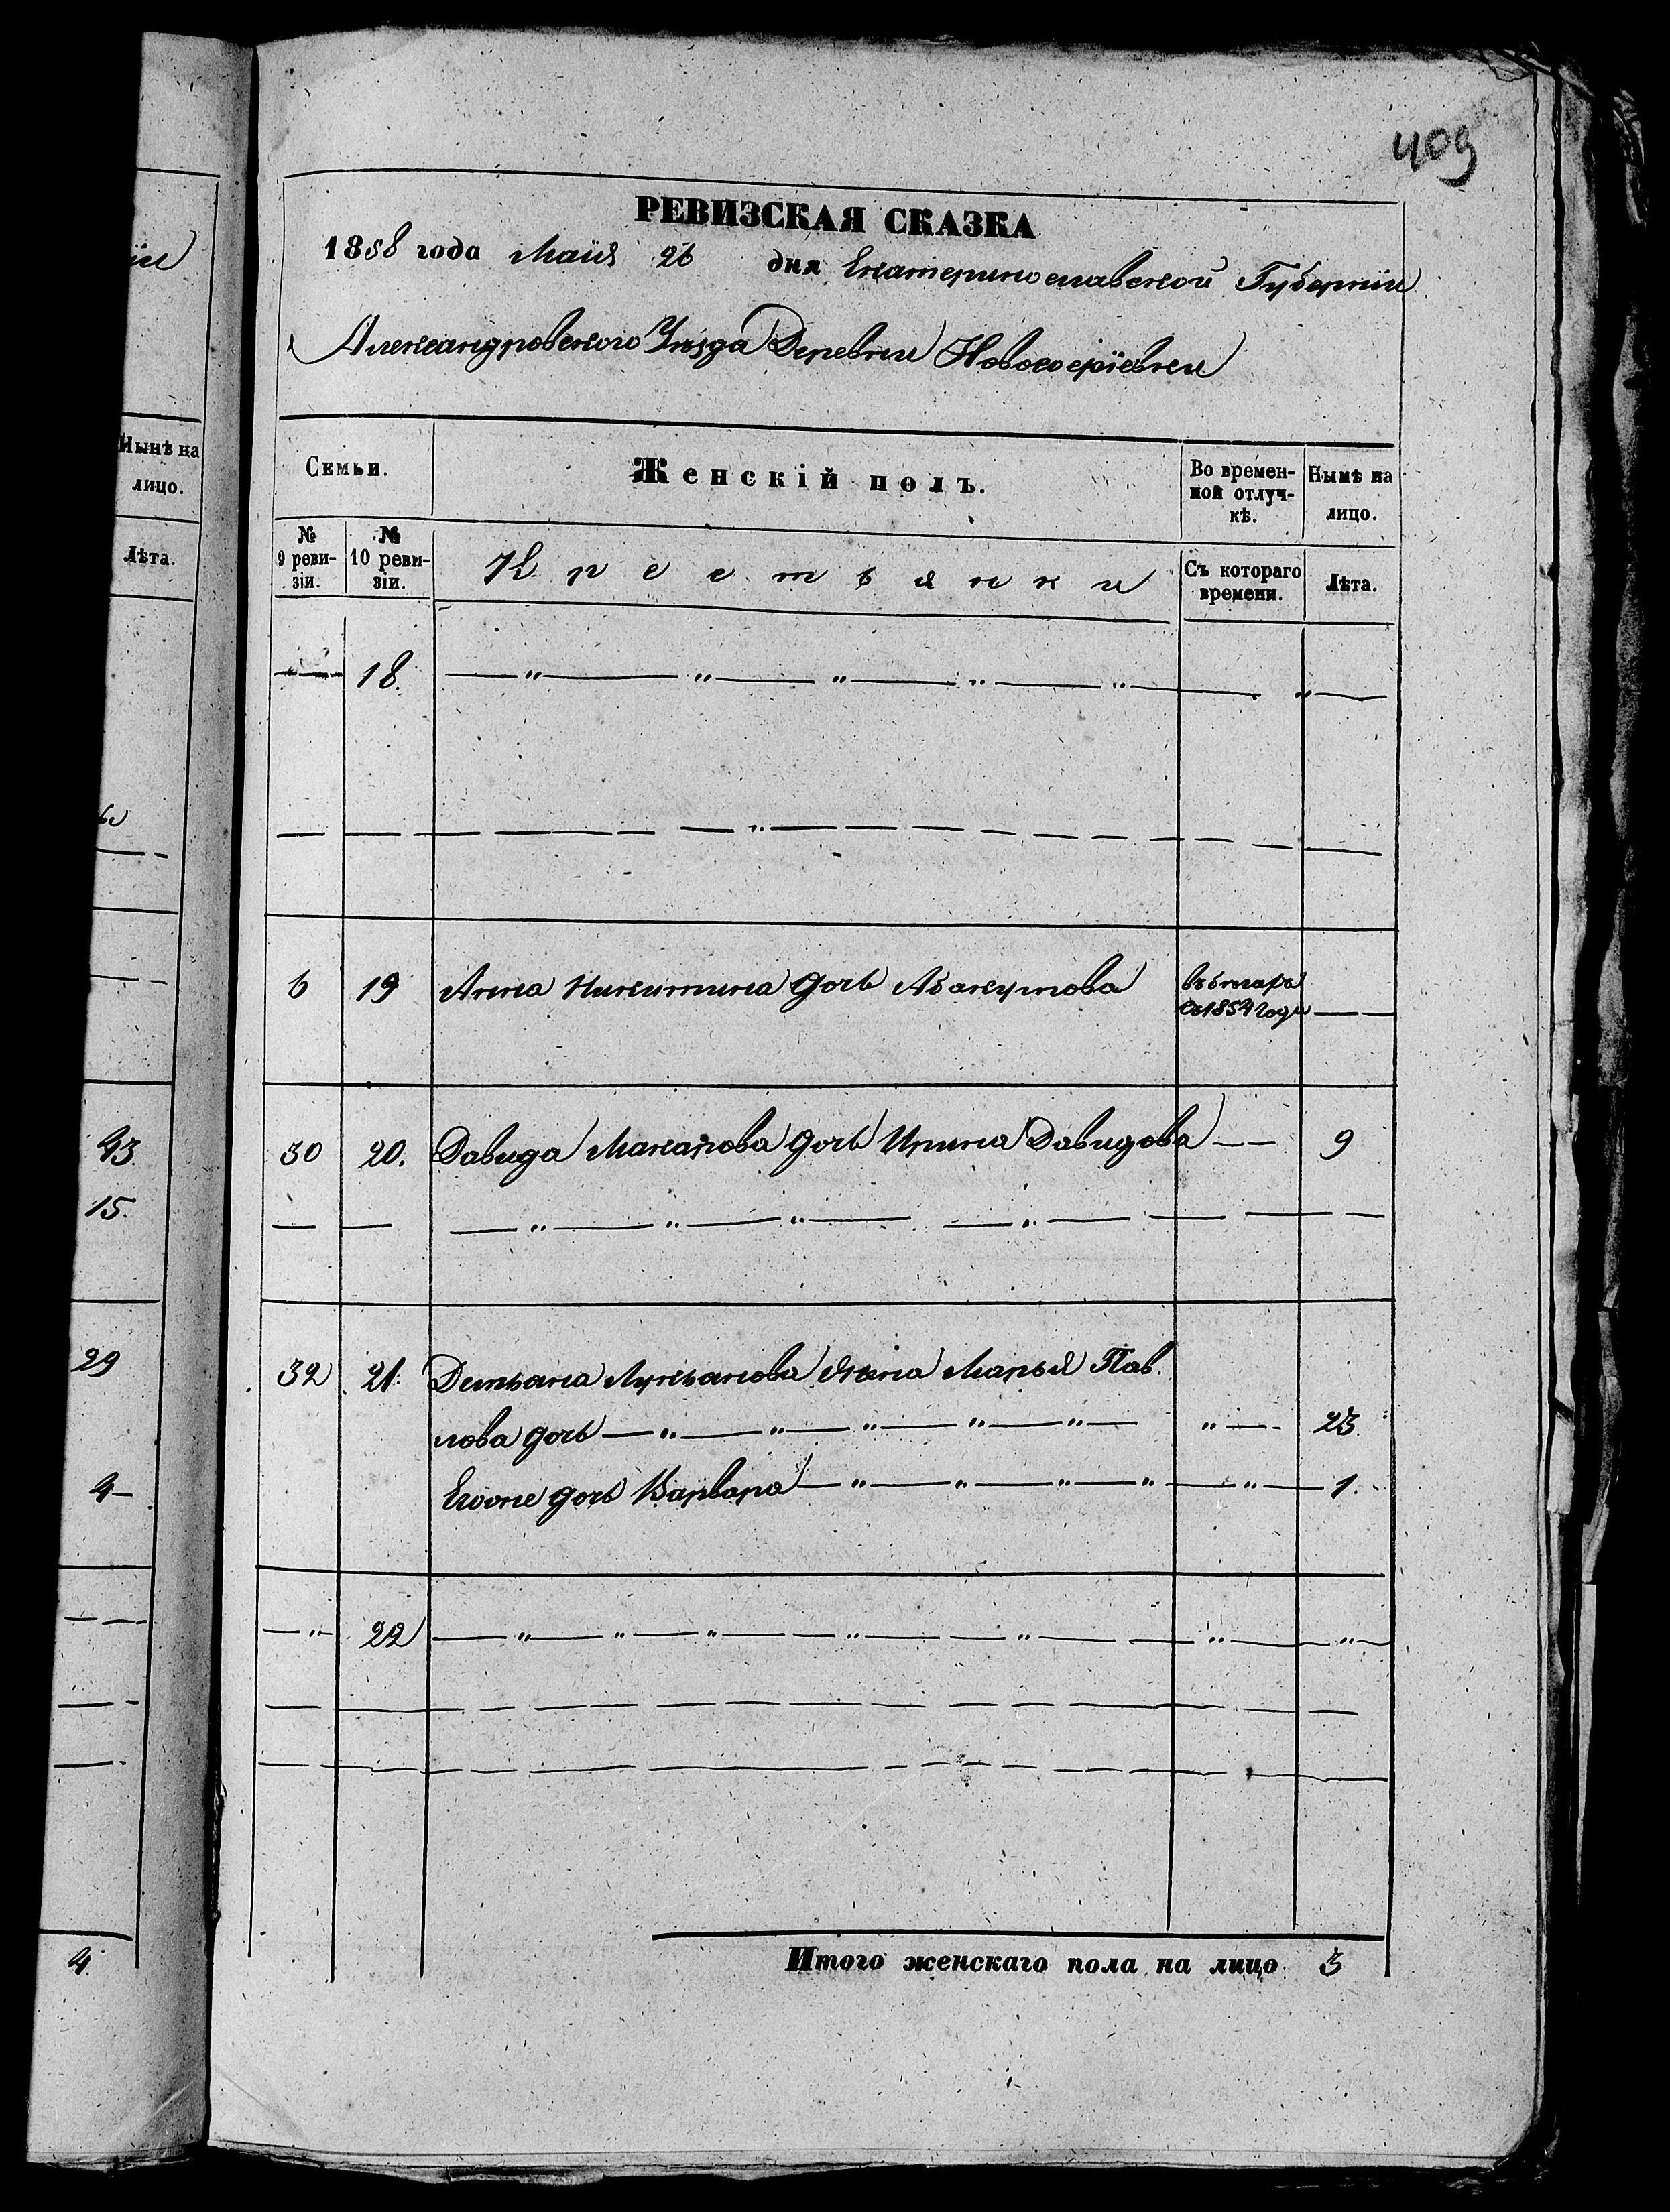 409
РЕВИЗСКАЯ СКАЗКА
1858 года Маия 26 дня Екатеринославской Губернии
Александровского Уѣзда Деревни
Семьи.
Женскій полъ.
Во времен-
ной отлуч-
кѣ.
Нынѣ на
лицо.
№
9 реви-
зіи.
№
10 реви-
зіи.
Крестьянки
Съ котораго
времени.
Лѣта.
18.
6 19 Анна Никитина дочь Абакумова въ бѣгахъ
съ 1854 года
30 20. Давида Макарова дочь Ирина Давидова 9
32 21. Демьяна Лукьянова жена Марья Пав
лова дочь 23.
Ихъ дочь Варвара 1.
22
Итого женскаго пола на лицо 3
Нынѣ на
лицо.
Лѣта.
43.
15.
29
4
4.